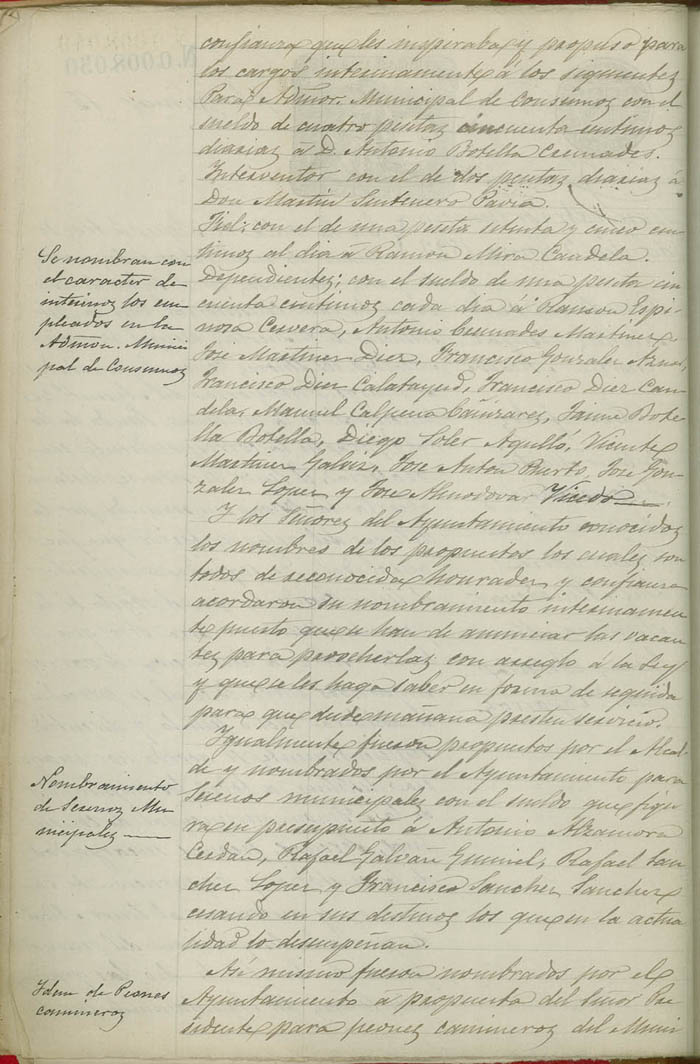 N. 0.008.080
confianza que les inspiraba y propuso para
los cargos interinamente á los siguientes
Para Admor. Municipal de Consumos con el
sueldo de cuatro pesetas cincuenta centimos
diarias á D. Antonio Botella Cremades.
Interventor con el de dos pesetas diarias á
Don Martin Sentenero Pavia.
Fiel; con el de una peseta setenta y cinco cen-
timos al dia á Ramon Mira Candela.
Dependientes; con el sueldo de una peseta cin
cuenta centimos cada dia á Ramon Espi-
nosa Cervera, Antonio Cremades Martinez,
José Martinez Diez, Francisco Gonzalez Aznar,
Francisco Diez Calatayud, Francisco Diez Can
dela, Manuel Calpena Cañizares, Jaime Bote
lla Botella, Diego Soler Agullo, Vicente
Martinez Galvis, Jose Anton Puerto, José Gon-
zalez Lopez y Jose Almodovar Vicedo
Y los Señores del Ayuntamiento conocidos
los nombres de los propuestos los cuales son
todos de reconocida honradez y confianza
acordaron su nombramiento interinamen
te puesto que se han de anunciar las vacan
tes para proveherlas con arreglo á la Ley
y que se les haga saber en forma de seguida
para que desde mañana presten servicio.
Igualmente fueron propuestos por el Alcal-
de y nombrados por el Ayuntamiento para
Serenos municipales con el sueldo que figu
ra en presupuesto á Antonio Alzamora
Cerdan, Rafael Galvañ Gumiel, Rafael San
chez Lopez y Francisco Sanchez Sanchez
cesando en sus destinos los que en la actua
lidad lo desempeñan.
Asi mismo fueron nombrados por el
Ayuntamiento a propuesta del Señor Pre
sidente para peones camineros del Muni
Se nombran con
el caracter de
interinos los em
pleados en la
Admon. Munici
pal de Consumos
Nombramiento
de Serenos Mu-
nicipales
Idem de Peones
camineros